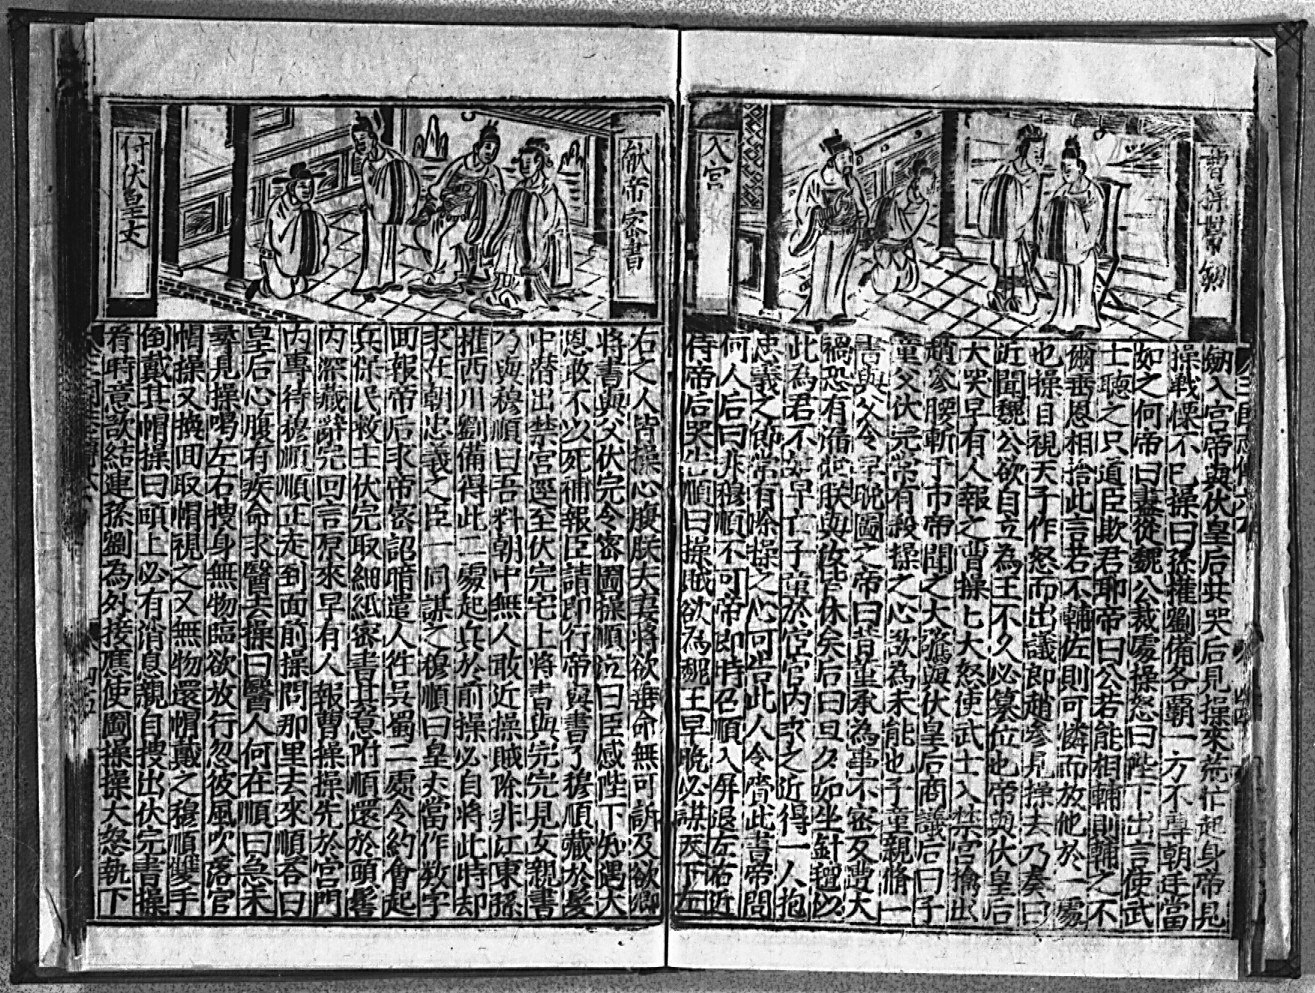 曹操帶劍
入宮
劍入宮帝與伏皇后共哭后見操來荒忙起身帝見
操戰慄不已操曰孫權劉備各霸一方不尊朝廷當
如之何帝曰盡從魏公裁處操怒曰陛下出言使武
士聽之只道臣欺君耶帝曰公若能相輔則輔之不
爾垂恩相捨此言若不輔佐則可憐而放他於一處
也操目視天子作怒而出議郎趙參見操去乃奏曰
近聞魏公欲自立為王不久必篡位也帝與伏皇后
大哭早有人報之曹操七大怒使武士入禁宮擒出
趙參腰斬于市帝聞之大驚與伏皇后商議后曰子
童父伏完常有殺操之心欲為未能也子童親脩一
書與父令早晚圖之帝曰昔董承為事不密反遭大
禍恐有漏泄朕與汝皆休矣后曰旦夕如坐針氈以
此為君不如早亡子童於宦官內求之近得一人抱
忠義之節常有除操之心可告此人令賫此書帝問
何人后曰非穆順不可帝即時召順入屏退左右近
侍帝后哭告順曰操賊欲為魏王早晚必謀天下左
獻帝密書
付伏皇丈
右之人皆操心腹朕夫妻將欲垂命無可訴及欲卿
將書與父伏完令密圖操順泣曰臣感陛下知遇大
恩敢不以死補報臣請即行帝與書了穆順藏於髮
中潛出禁宮逕至伏完宅上將書與完完見女親書
乃與穆順曰吾料朝中無人敢近操賊除非江東孫
權西川劉備得此二處起兵於前操必自將此時却
求在朝忠義之臣一同謀之穆順曰皇丈當作数字
回報帝后求帝密詔暗遣人往吳蜀二處令約會起
兵保民救主伏完取細紙密書其意附順還於頭髻
內深藏辭完回言原來早有人報曹操操先於宮門
內專待穆順順正走到面前操問那里去來順荅曰
皇后心腹有疾命求醫去操曰醫人何在順曰急未
尋見操喝左右搜身無物臨欲放行忽彼風吹落官
帽操又換回取帽視之又無物還帽戴之穆順雙手
倒戴其帽操曰頭上必有消息親自搜出伏完書操
看時意欲結連孫劉為外接應使圖操操大怒執下